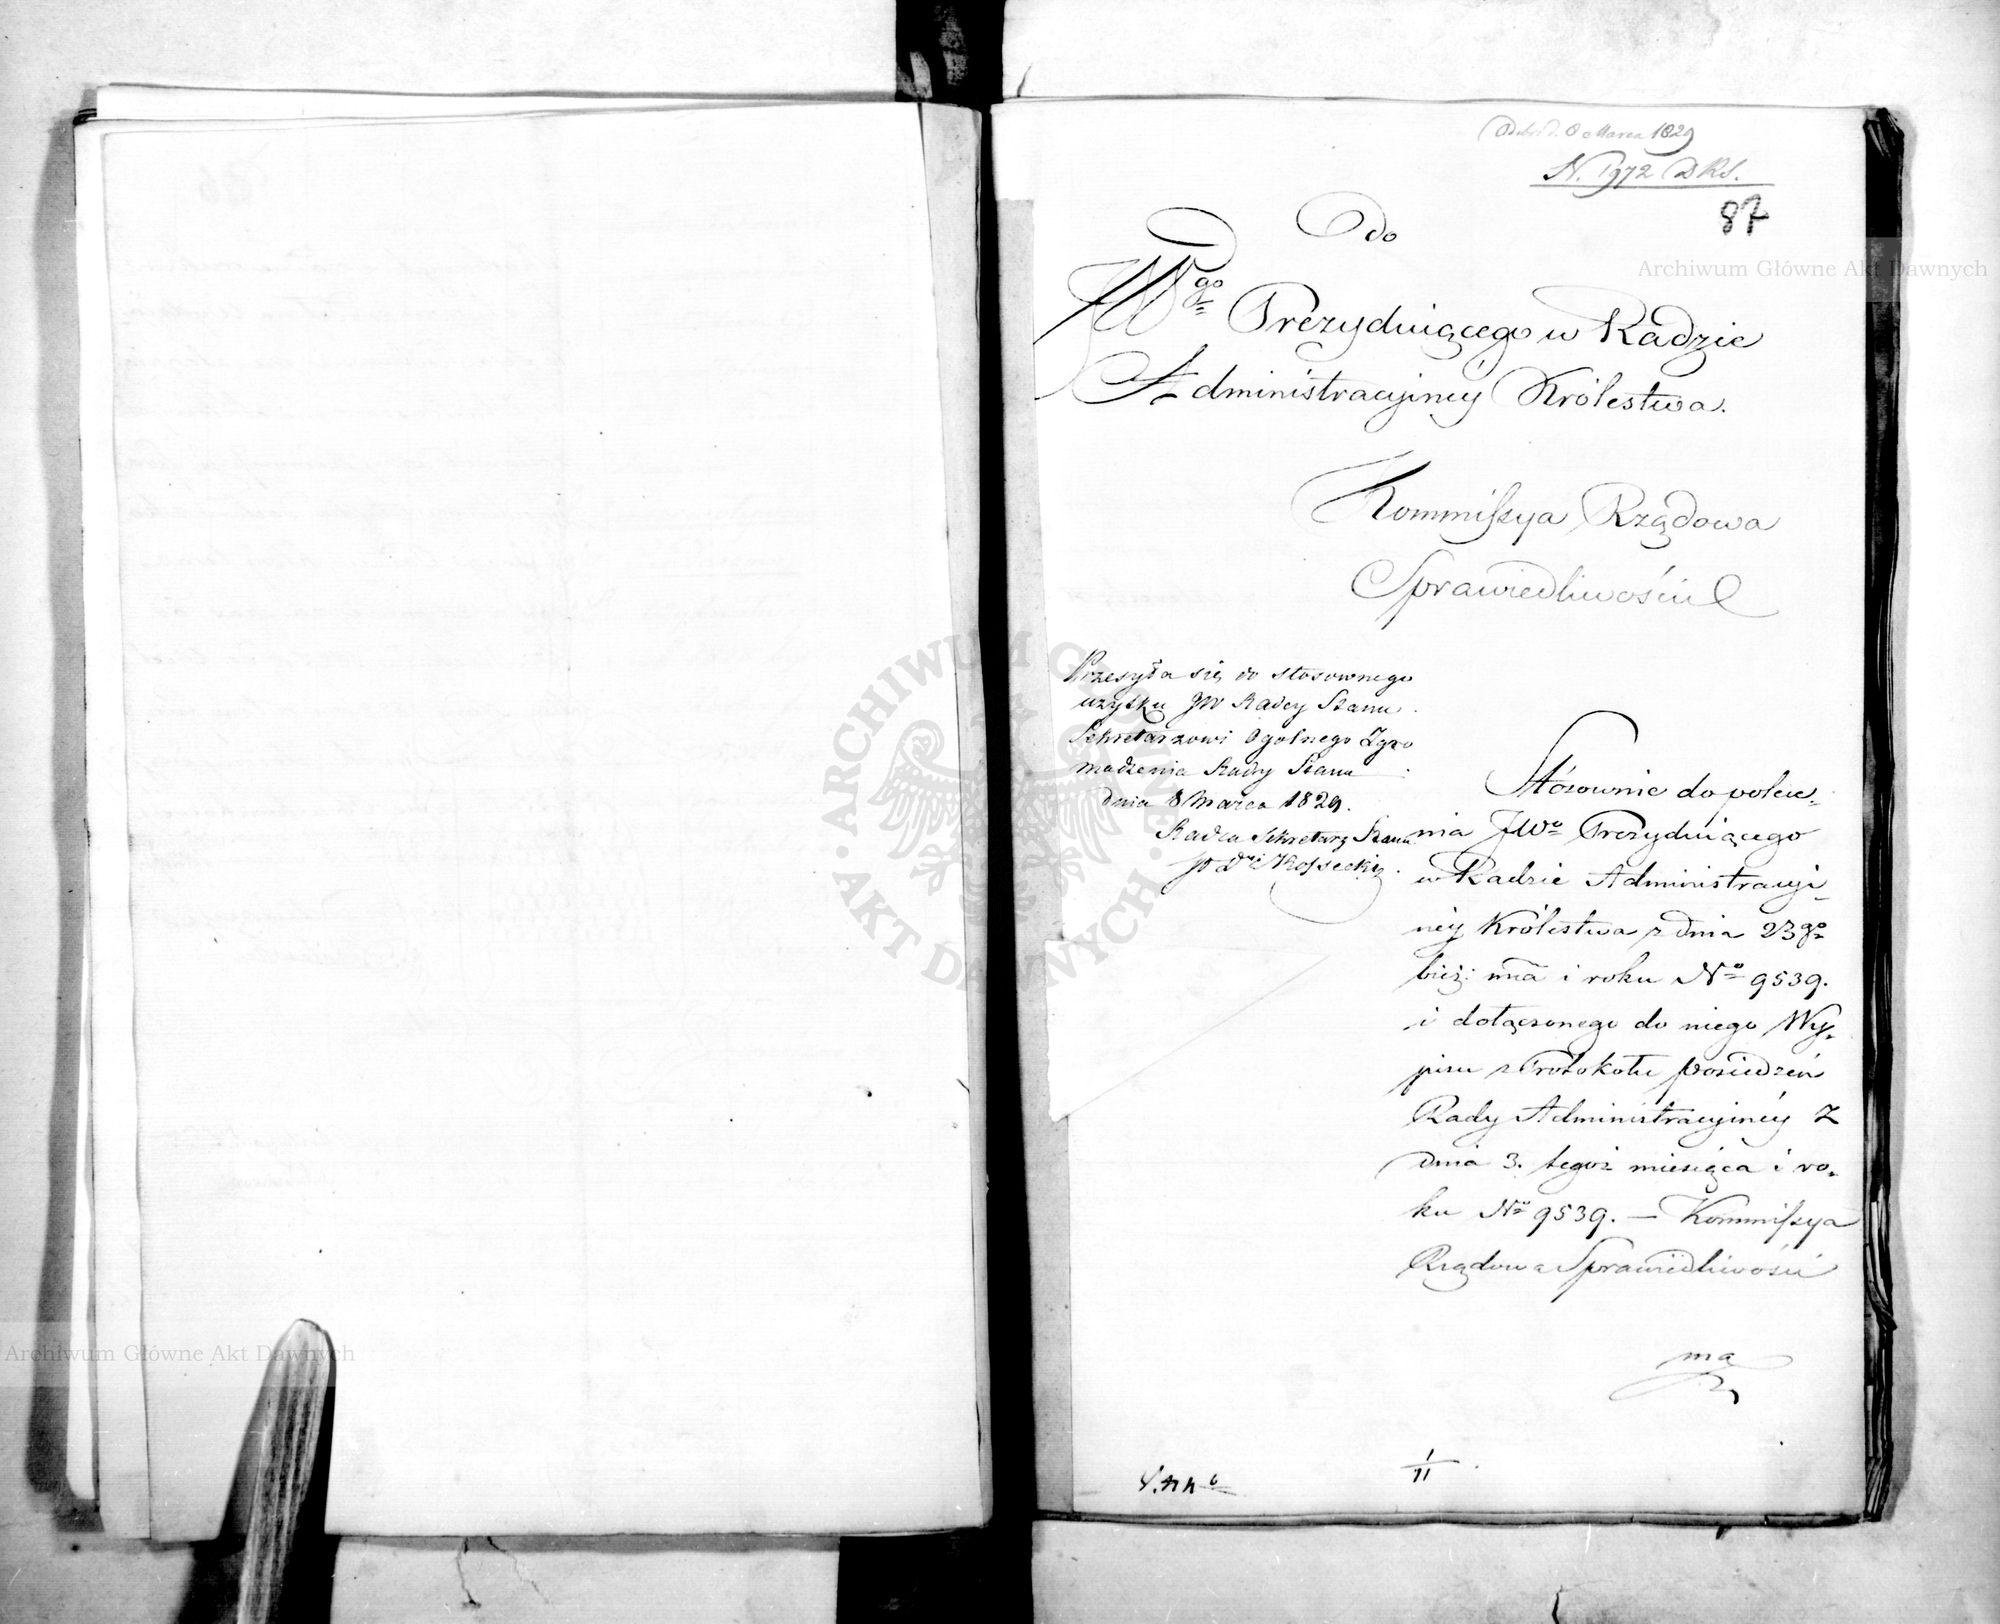 Odebr. d. 8 Marca 1829
N. 1972 DKS.
87
Do
JWgo Prezyduiącego w Radzie
Administracyjney Królestwa.
Kommissya Rządowa
Sprawiedliwości
Przesyła się do stosownego
użytku JW Radcy Stanu
Sekretarzowi Ogólnego Zgro
madzenia Rady Stanu
dnia 8 Marca 1829.
Radca Sekretarz Stanu
Kossecki
Stósownie do polece-
nia JWo Prezyduiącego
w Radzie Administracyi-
ney Królestwa z dnia 23go
bież: mca i roku No 9539.
i dołączonego do niego Wy-
pisu z Protokołu posiedzeń
Rady Administracyiney z
dnia 3. tegoż miesiąca i ro-
ku No 9539. — Kommissya
Rządowa Sprawiedliwości
ma
1/11
Archiwum Główne Akt Dawnych
Archiwum Główne Akt Dawnych
ARCHIWUM GŁÓWNE
AKT DAWNYCH